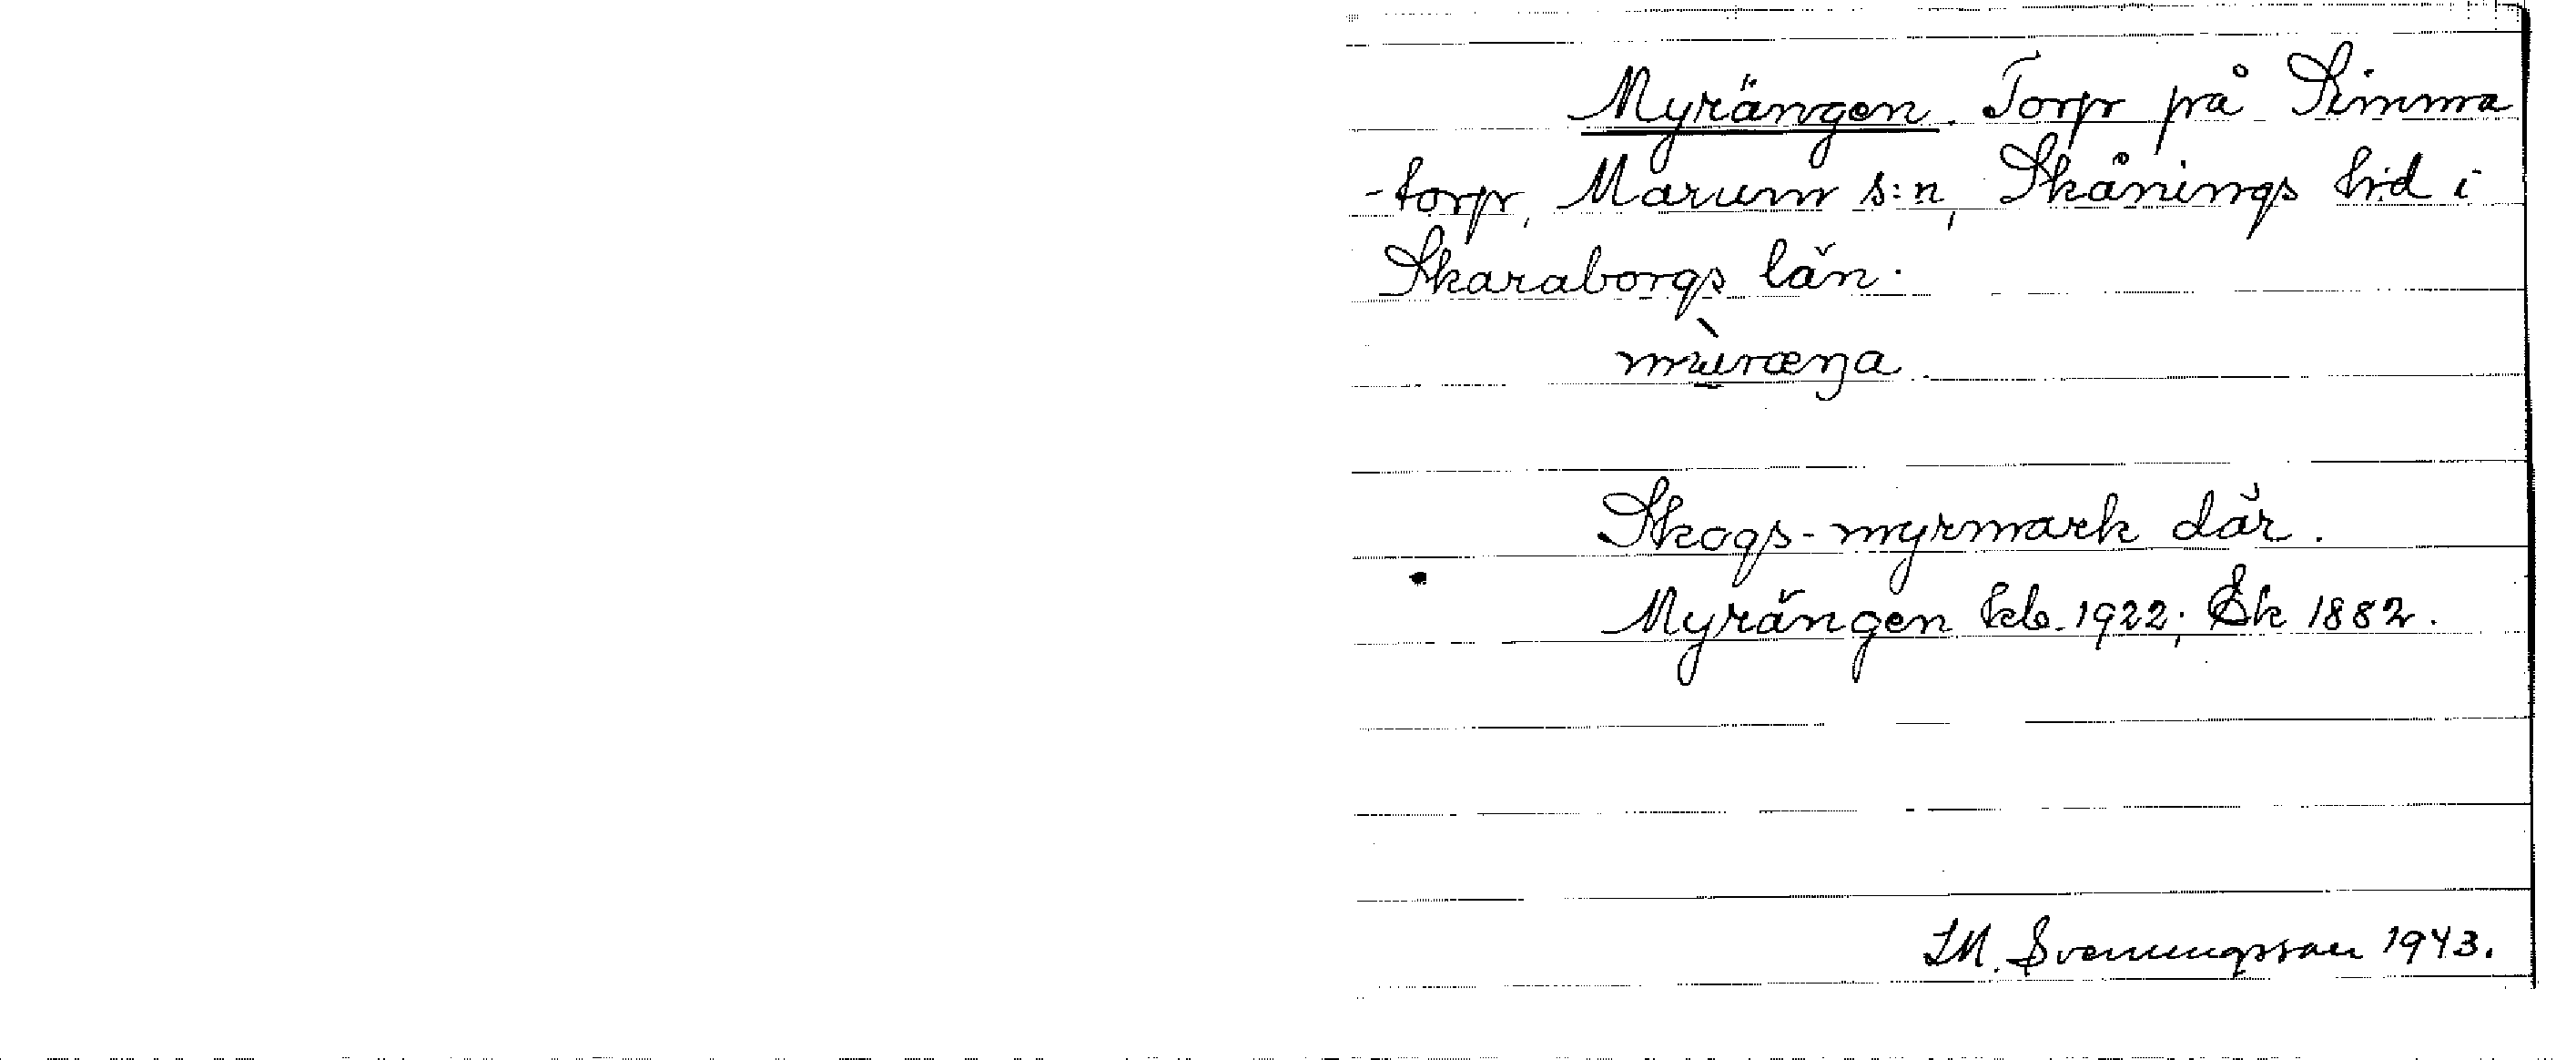 Myrängen. Torp på Simma
-torp, Marum s:n, Skånings hd i
Skaraborgs län.
mùræŋa
Skogs-myrmark där.
Myrängen kb. 1922; Ek 1882.
I.M. Svenungsson 1943.